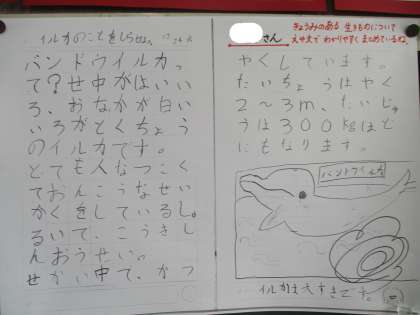 イルカのことをしらせよう
バンドウイルカっ
て?せ中がはいい
ろ、おなかが白い
いろがとくちょう
のイルカです。
とても人なつこく
ておんこうなせい
かくをしているし。
るいで、こうきし
んおうせい。
せかい中で、かつ
さん
きょうみのある 生きものについて
えや文で わかりやすく まとめているね。
やくしています。
たいちょうはやく
2〜3m、たいじゅ
うは300kgほど
にもなります。
バンドウイルカ
イルカは大すきです。